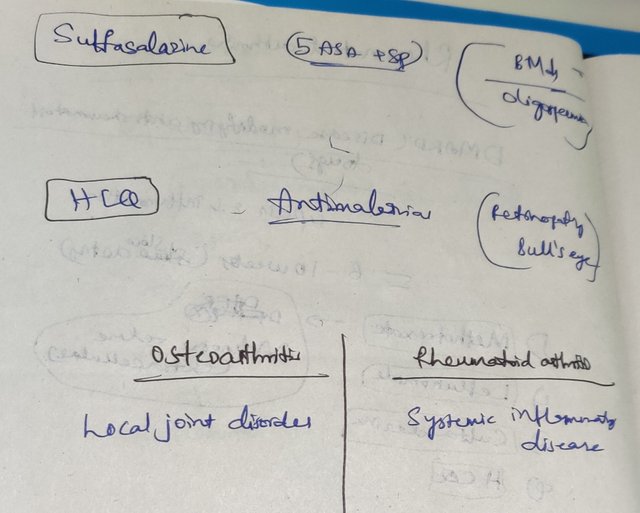 Sulfasalazine (5 ASA + SP) BM↓
oligospermia
HCQ - Antimalaria Retinopathy
Bull's eye
Osteoarthritis Rheumatoid arthritis
Local joint disorder Systemic inflammatory
disease